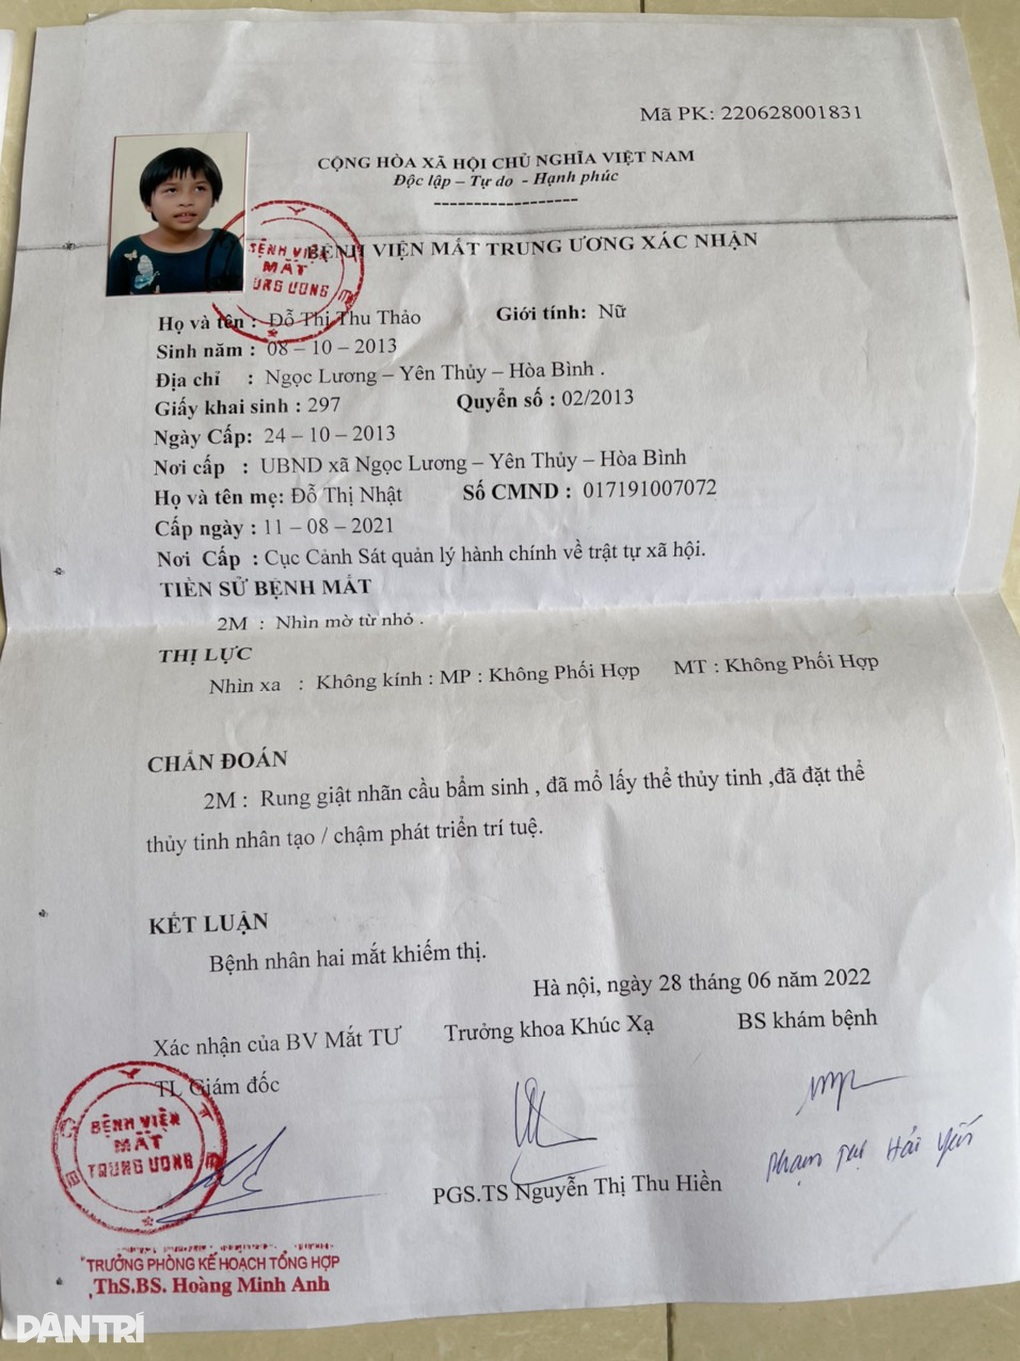 Mã PK: 220628001831
CỘNG HÒA XÃ HỘI CHỦ NGHĨA VIỆT NAM
Độc lập – Tự do - Hạnh phúc
------------------
BỆNH VIỆN MẮT TRUNG ƯƠNG XÁC NHẬN
BỆNH VIỆN
MẮT
TRUNG ƯƠNG
Họ và tên : Đỗ Thị Thu Thảo Giới tính: Nữ
Sinh năm : 08 – 10 – 2013
Địa chỉ : Ngọc Lương – Yên Thủy – Hòa Bình .
Giấy khai sinh : 297 Quyển số : 02/2013
Ngày Cấp: 24 – 10 – 2013
Nơi cấp : UBND xã Ngọc Lương – Yên Thủy – Hòa Bình
Họ và tên mẹ: Đỗ Thị Nhật Số CMND : 017191007072
Cấp ngày : 11 – 08 – 2021
Nơi Cấp : Cục Cảnh Sát quản lý hành chính về trật tự xã hội.
TIỀN SỬ BỆNH MẮT
2M : Nhìn mờ từ nhỏ .
THỊ LỰC
Nhìn xa : Không kính : MP : Không Phối Hợp MT : Không Phối Hợp
CHẨN ĐOÁN
2M : Rung giật nhãn cầu bẩm sinh , đã mổ lấy thể thủy tinh ,đã đặt thể
thủy tinh nhân tạo / chậm phát triển trí tuệ.
KẾT LUẬN
Bệnh nhân hai mắt khiếm thị.
Hà nội, ngày 28 tháng 06 năm 2022
Xác nhận của BV Mắt TƯ Trưởng khoa Khúc Xạ BS khám bệnh
TL Giám đốc
BỆNH VIỆN
MẮT
TRUNG ƯƠNG
Phạm Hải Yến
PGS.TS Nguyễn Thị Thu Hiền
TRƯỞNG PHÒNG KẾ HOẠCH TỔNG HỢP
ThS.BS. Hoàng Minh Anh
DÂN TRÍ